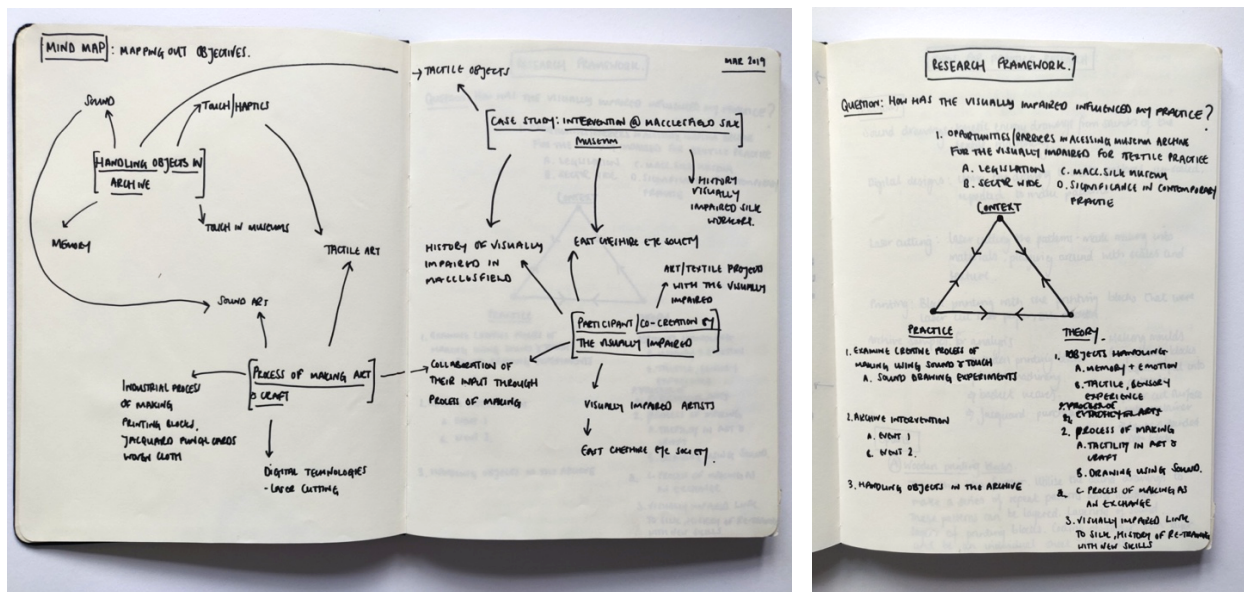 MIND MAP: MAPPING OUT OBJECTIVES.
SOUND
TOUCH/HAPTICS
HANDLING OBJECTS IN
ARCHIVE
MEMORY
TOUCH IN MUSEUMS
TACTILE ART
SOUND ART
PROCESS OF MAKING ART
& CRAFT
INDUSTRIAL PROCESS
OF MAKING
PRINTING BLOCKS,
JACQUARD PUNCH CARDS
WOVEN CLOTH
DIGITAL TECHNOLOGIES
- LASER CUTTING
MAR 2019
TACTILE OBJECTS
CASE STUDY: INTERVENTION @ MACCLESFIELD SILK
MUSEUM
HISTORY
VISUALLY
IMPAIRED SILK
WORKERS.
HISTORY OF VISUALLY
IMPAIRED IN
MACCLESFIELD
EAST CHESHIRE EYE SOCIETY
ART/TEXTILE PROJECTS
WITH THE VISUALLY
IMPAIRED
PARTICIPANT/CO-CREATION BY
THE VISUALLY IMPAIRED
COLLABORATION OF
THEIR INPUT THROUGH
PROCESS OF MAKING
VISUALLY IMPAIRED ARTISTS
EAST CHESHIRE EYE SOCIETY.
RESEARCH FRAMEWORK.
QUESTION: HOW HAS THE VISUALLY IMPAIRED INFLUENCED MY PRACTICE?
1. OPPORTUNITIES/BARRIERS IN ACESSING MUSEUM ARCHIVE
FOR THE VISUALLY IMPAIRED FOR TEXTILE PRACTICE
A. LEGISLATION C. MACC. SILK MUSEUM
B. SECTOR WIDE D. SIGNIFICANCE IN CONTEMPORARY
PRACTIE
CONTEXT
PRACTICE
1. EXAMINE CREATIVE PROCESS OF
MAKING USING SOUND & TOUCH
A. SOUND DRAWING EXPERIMENTS
2. ARCHIVE INTERVENTION
A. EVENT 1
B. EVENT 2.
3. HANDLING OBJECTS IN THE ARCHIVE
THEORY.
1. OBJECTS HANDLING
A. MEMORY + EMOTION
B. TACTILE, SENSORY
EXPERIENCE
2. PROCESS OF MAKING
A. TACTILITY IN ART &
CRAFT
B. DRAWING USING SOUND.
C. PROCESS OF MAKING AS
AN EXCHANGE
3. VISUALLY IMPAIRED LINK
TO SILK, HISTORY OF RE-TRAINING
WITH NEW SKILLS